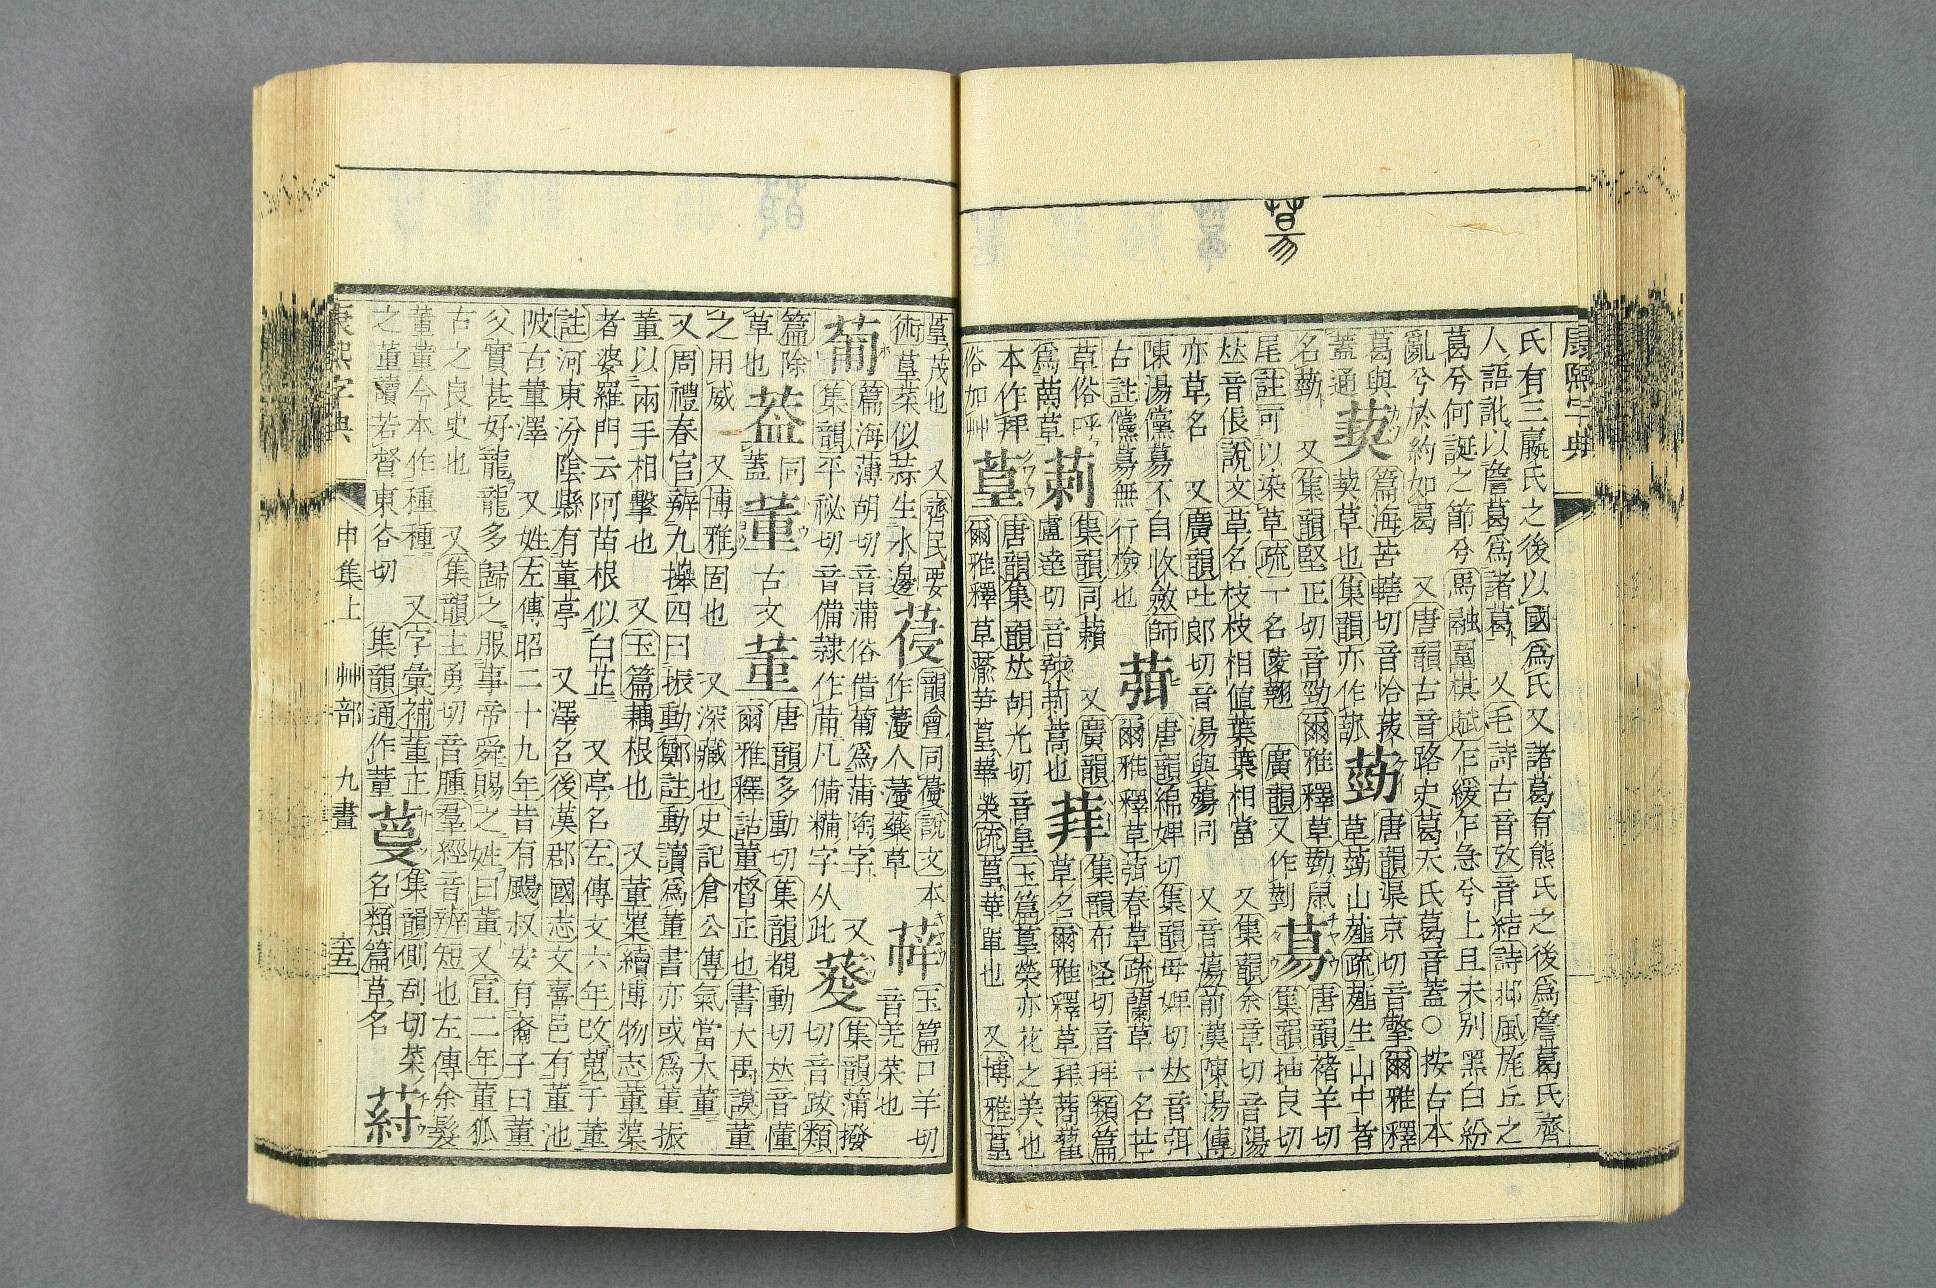 葛
康熙字典
氏有三嬴氏之後以國爲氏又諸葛有熊氏之後爲詹葛氏齊
人語訛以詹葛爲諸葛 又毛詩古音攷音結詩邶風旄丘之
葛兮何誕之節兮馬融圍棋賦乍緩乍急兮上且未别黑白紛
亂兮於約如葛 又唐韻古音路史葛天氏葛音蓋○按古本
葛與
蓋通
葜
篇海苦轄切音恰菝
葜草也集韻亦作
葝
唐韻渠京切音擎爾雅釋
草葝山䪥疏䪥生山中者
名葝 又集韻堅正切音勁爾雅釋草葝鼠
尾註可以染草疏一名陵翹 廣韻又作
募
唐韻褚羊切
集韻抽良切
𠀤音倀說文草名枝枝相值葉葉相當 又集韻余章切音陽
亦草名 又廣韻吐郎切音湯與蕩同 又音蕩前漢陳湯傳
陳湯儻募不自收斂師
古註儻募無行檢也
葞
唐韻綿婢切集韻母婢切𠀤音弭
爾雅釋草葞春草疏蘭草一名芒
草俗呼
爲䓵草
莿
集韻同藾 又廣韻
盧達切音辣莿蒿也
𦯷
集韻布怪切音拜類篇
草名爾雅釋草拜蔏藋
本作拜
葟
唐韻集韻𠀤胡光切音皇玉篇葟榮亦花之美也
俗加艸
爾雅釋草蘥芛葟華榮疏葟華單也 又博雅葟
葟茂也 又齊民要
術葟菜似蒜生水邊
葠
韻會同蓡說文本
作薓人薓藥草
𦯶
玉篇口羊切
音羌菜也
葡
篇海薄胡切音蒲俗借葡爲蒲萄字 又
集韻平祕切音備隸作𤰇凡備糒字从此
葰
集韻蒲撥
切音跋類
篇除
草也
葢
同
蓋
董
古文
蕫
唐韻多動切集韻覩動切𠀤音懂
爾雅釋詁董督正也書大禹謨董
之用威 又博雅固也 又深藏也史記倉公傳氣當大董
又周禮春官辨九擽四曰振動鄭註動讀爲董書亦或爲董振
董以兩手相擊也 又玉篇藕根也 又董蕖續博物志董蕖
者婆羅門云阿苗根似白芷 又亭名左傳文六年改蒐于董
註河東汾陰縣有董亭 又澤名後漢郡國志文喜邑有董池
陂古董澤 又姓左傳昭二十九年昔有飂叔安有裔子曰董
父實甚好龍龍多歸之服事帝舜賜之姓曰董又宣二年董狐
古之良史也 又集韻主勇切音腫羣經音辨短也左傳余髮
董董今本作種種 又字彙補董正
之董讀若督東谷切 集韻通作蕫
蔓
集韻側刮切菜
名類篇草名
葤
康熙字典
申集上 艸部 九畫